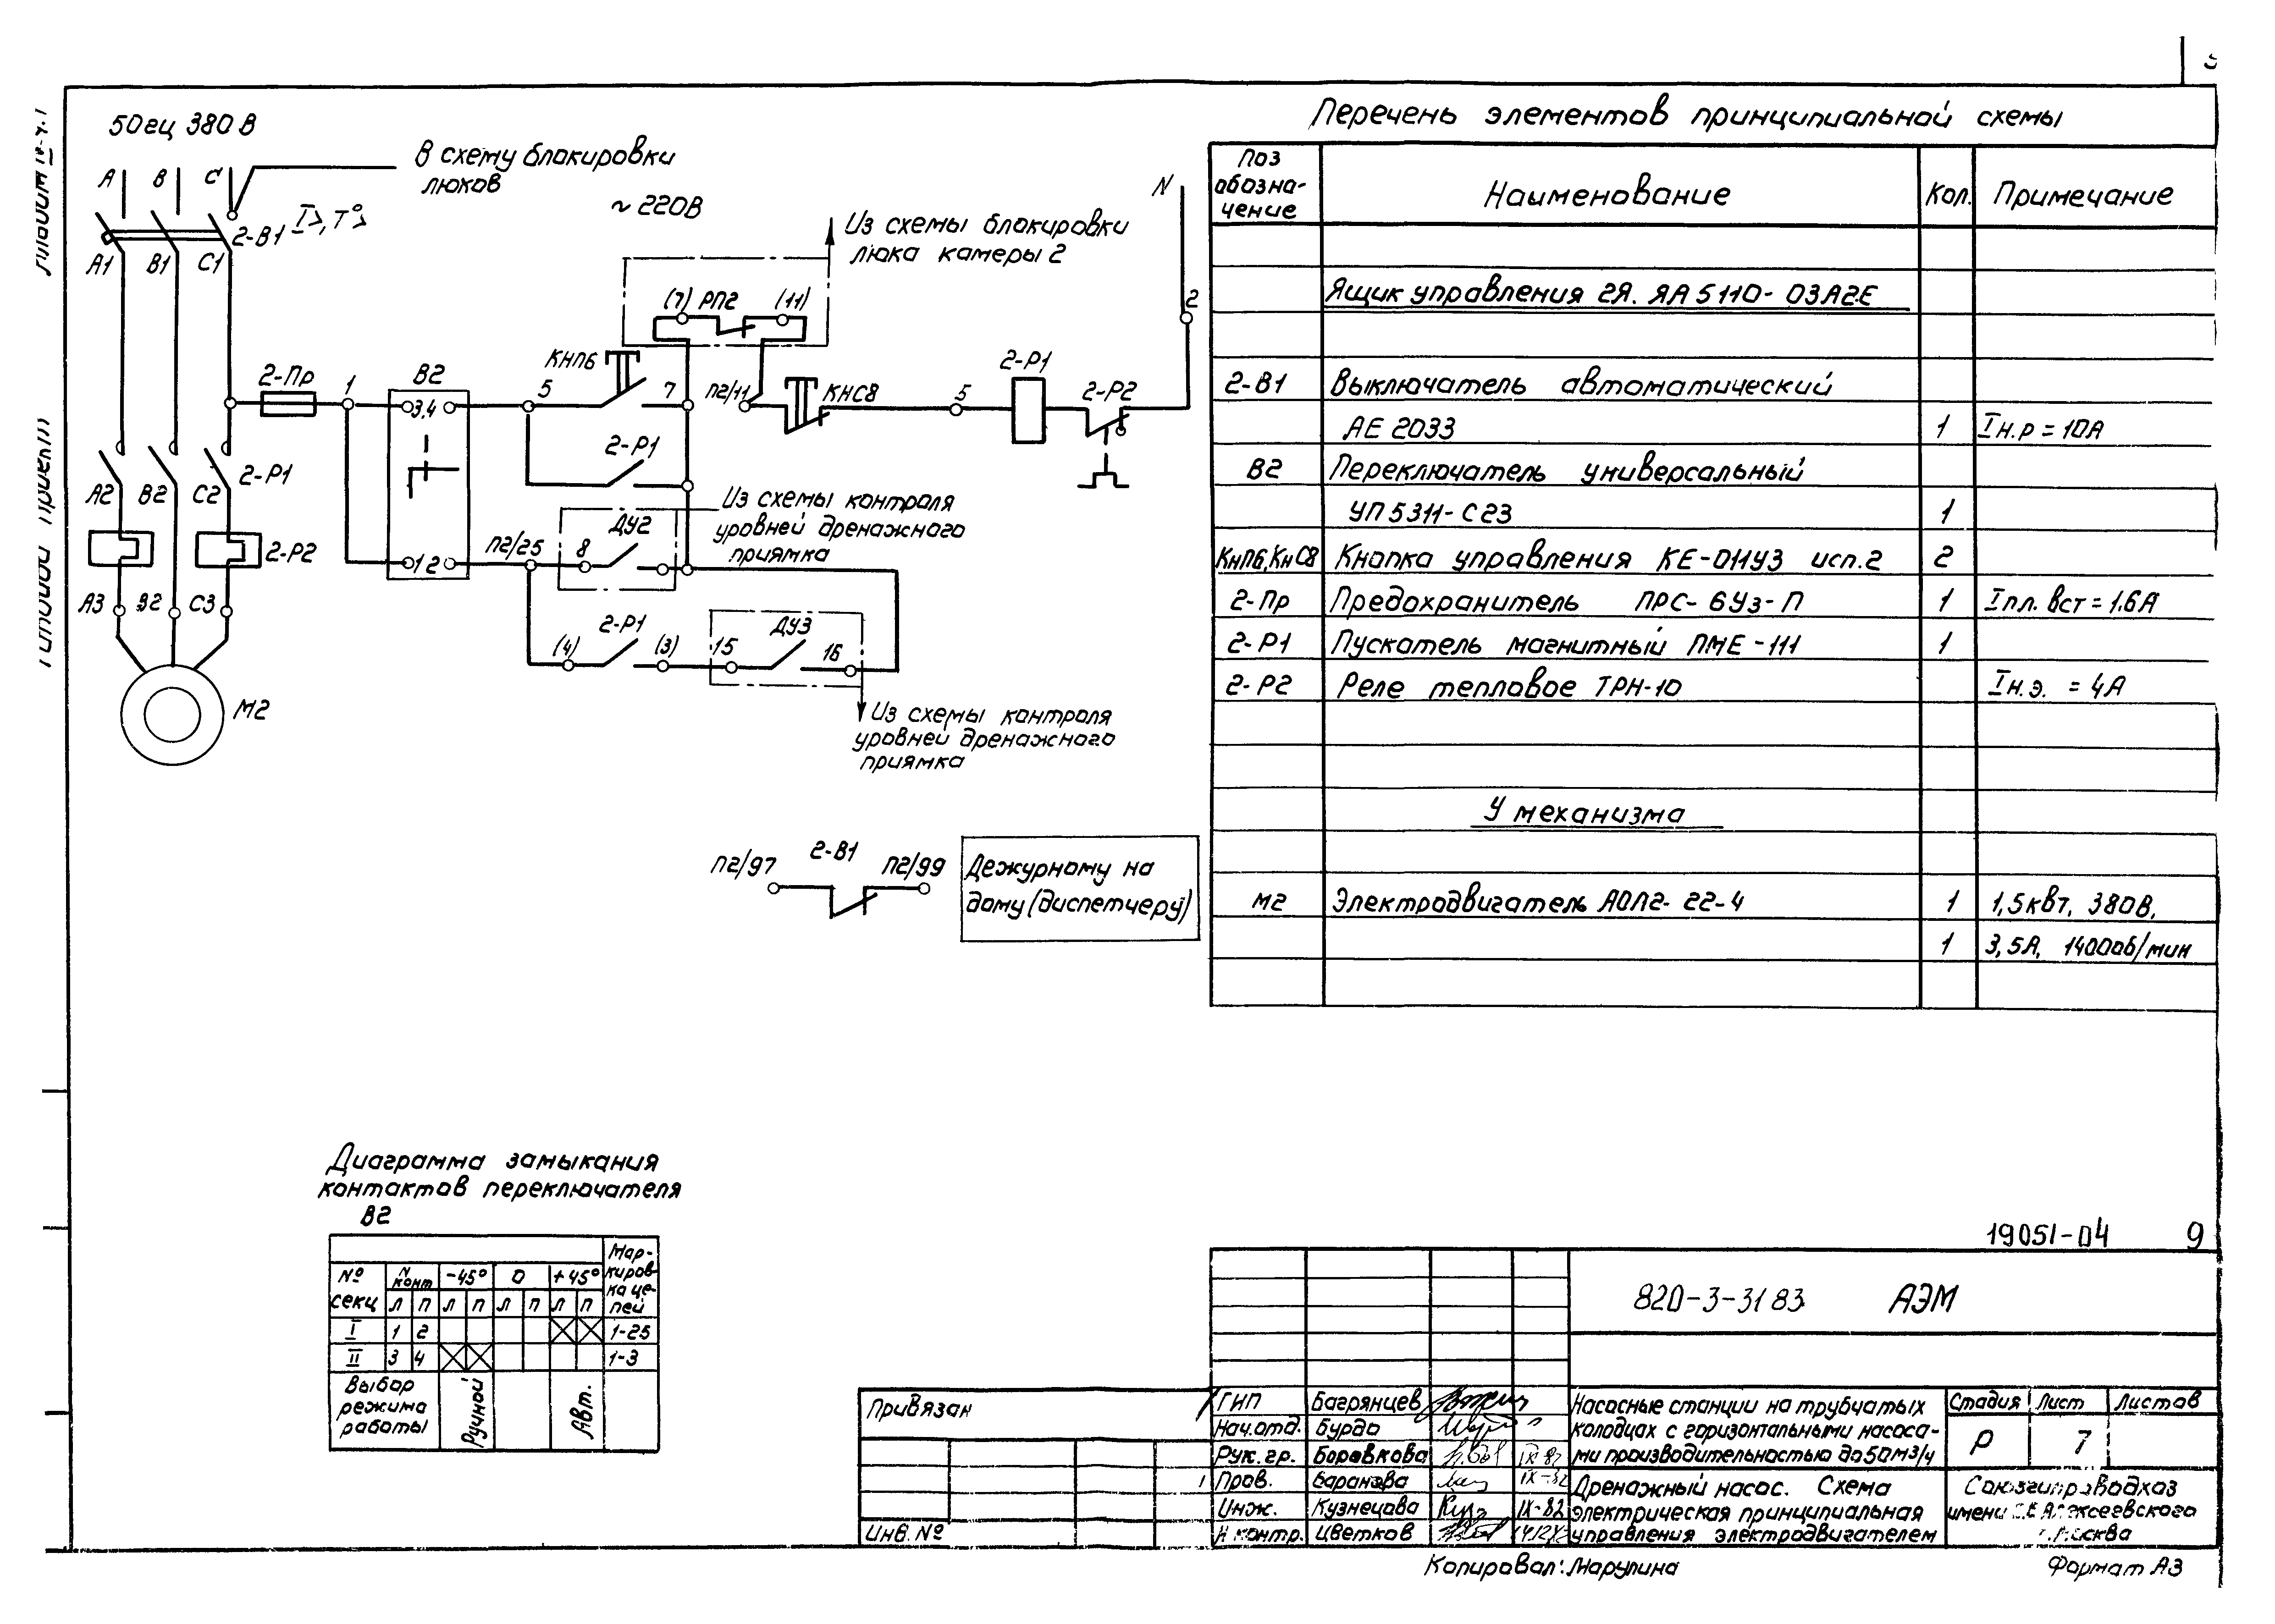 50гц 380В
А В С
В схему блокировки
люков
2-В1 I>, Т°>
А1 В1 С1
~ 220В
Из схемы блокировки
люка камеры 2
N
2
(7) РП2 (11)
2-Пр
1
В2
3,4
5
КНП6
7
П2/11
КНС8
5
2-Р1
2-Р2
2-Р1
А2 В2 С2
2-Р1
2-Р2
1 2
П2/25
8
ДУ2
Из схемы контроля
уровней дренажного
приямка
А3 В2 С3
(4) 2-Р1 (3)
15 ДУ3 16
М2
Из схемы контроля
уровней дренажного
приямка
П2/97 2-В1 П2/99
Дежурному на
дому (диспетчеру)
Перечень элементов принципиальной схемы
Поз
обозна-
чение
Наименование
Кол.
Примечание
Ящик управления 2Я. ЯА 5110-03А2Е
2-В1 Выключатель автоматический
АЕ 2033 1 Iн.р = 10А
В2 Переключатель универсальный
УП5311-С23 1
КнП6, КнС8 Кнопка управления КЕ-011У3 исп.2 2
2-Пр Предохранитель ПРС-6У3-П 1 Iпл. вст = 1.6А
2-Р1 Пускатель магнитный ПМЕ-111 1
2-Р2 Реле тепловое ТРН-10 Iн.э. = 4А
У механизма
М2 Электродвигатель АОЛ2-22-4 1 1,5квт, 380В,
1 3,5А, 1400об/мин
Диаграмма замыкания
контактов переключателя
В2
№ секц
N конт
-45° 0 +45°
Мар-
киров-
ка це-
пей
Л П Л П Л П Л П
I 1 2 1-25
II 3 4 1-3
Выбор
режима
работы
Ручной
Авт.
19051-04 9
820-3-31 83 АЭМ
Привязан
Инв. №
ГИП Багрянцев
Нач.отд. Бурдо
Рук.гр. Боровкова
Пров. Баранова
Инж. Кузнецова IX-82
Н контр. Цветков
Насосные станции на трубчатых
колодцах с горизонтальными насоса-
ми производительностью до 50м3/ч
Стадия Лист Листов
Р 7
Дренажный насос. Схема
электрическая принципиальная
управления электродвигателем
Союзгипроводхоз
имени Е.Е. Алексеевского
г. Москва
Копировал: Марулина
Формат А3